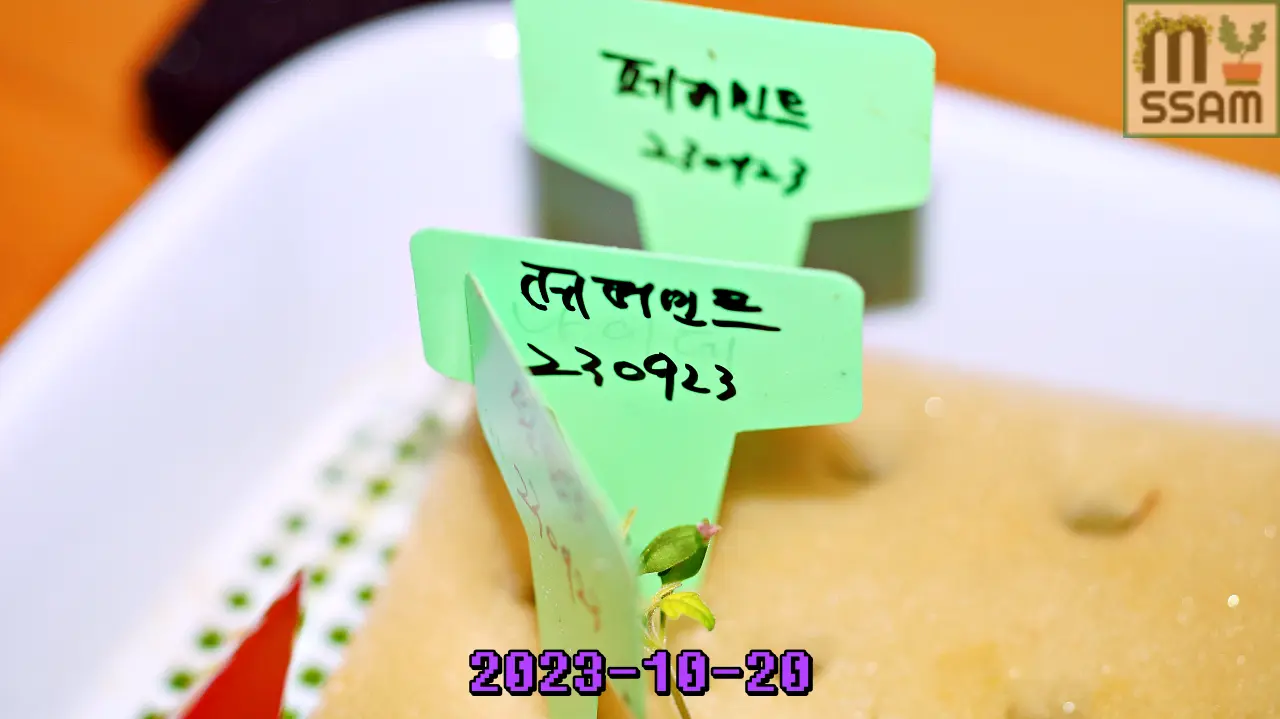 M
SSAM
페퍼민트
230923
페퍼민트
230923
2023-10-20